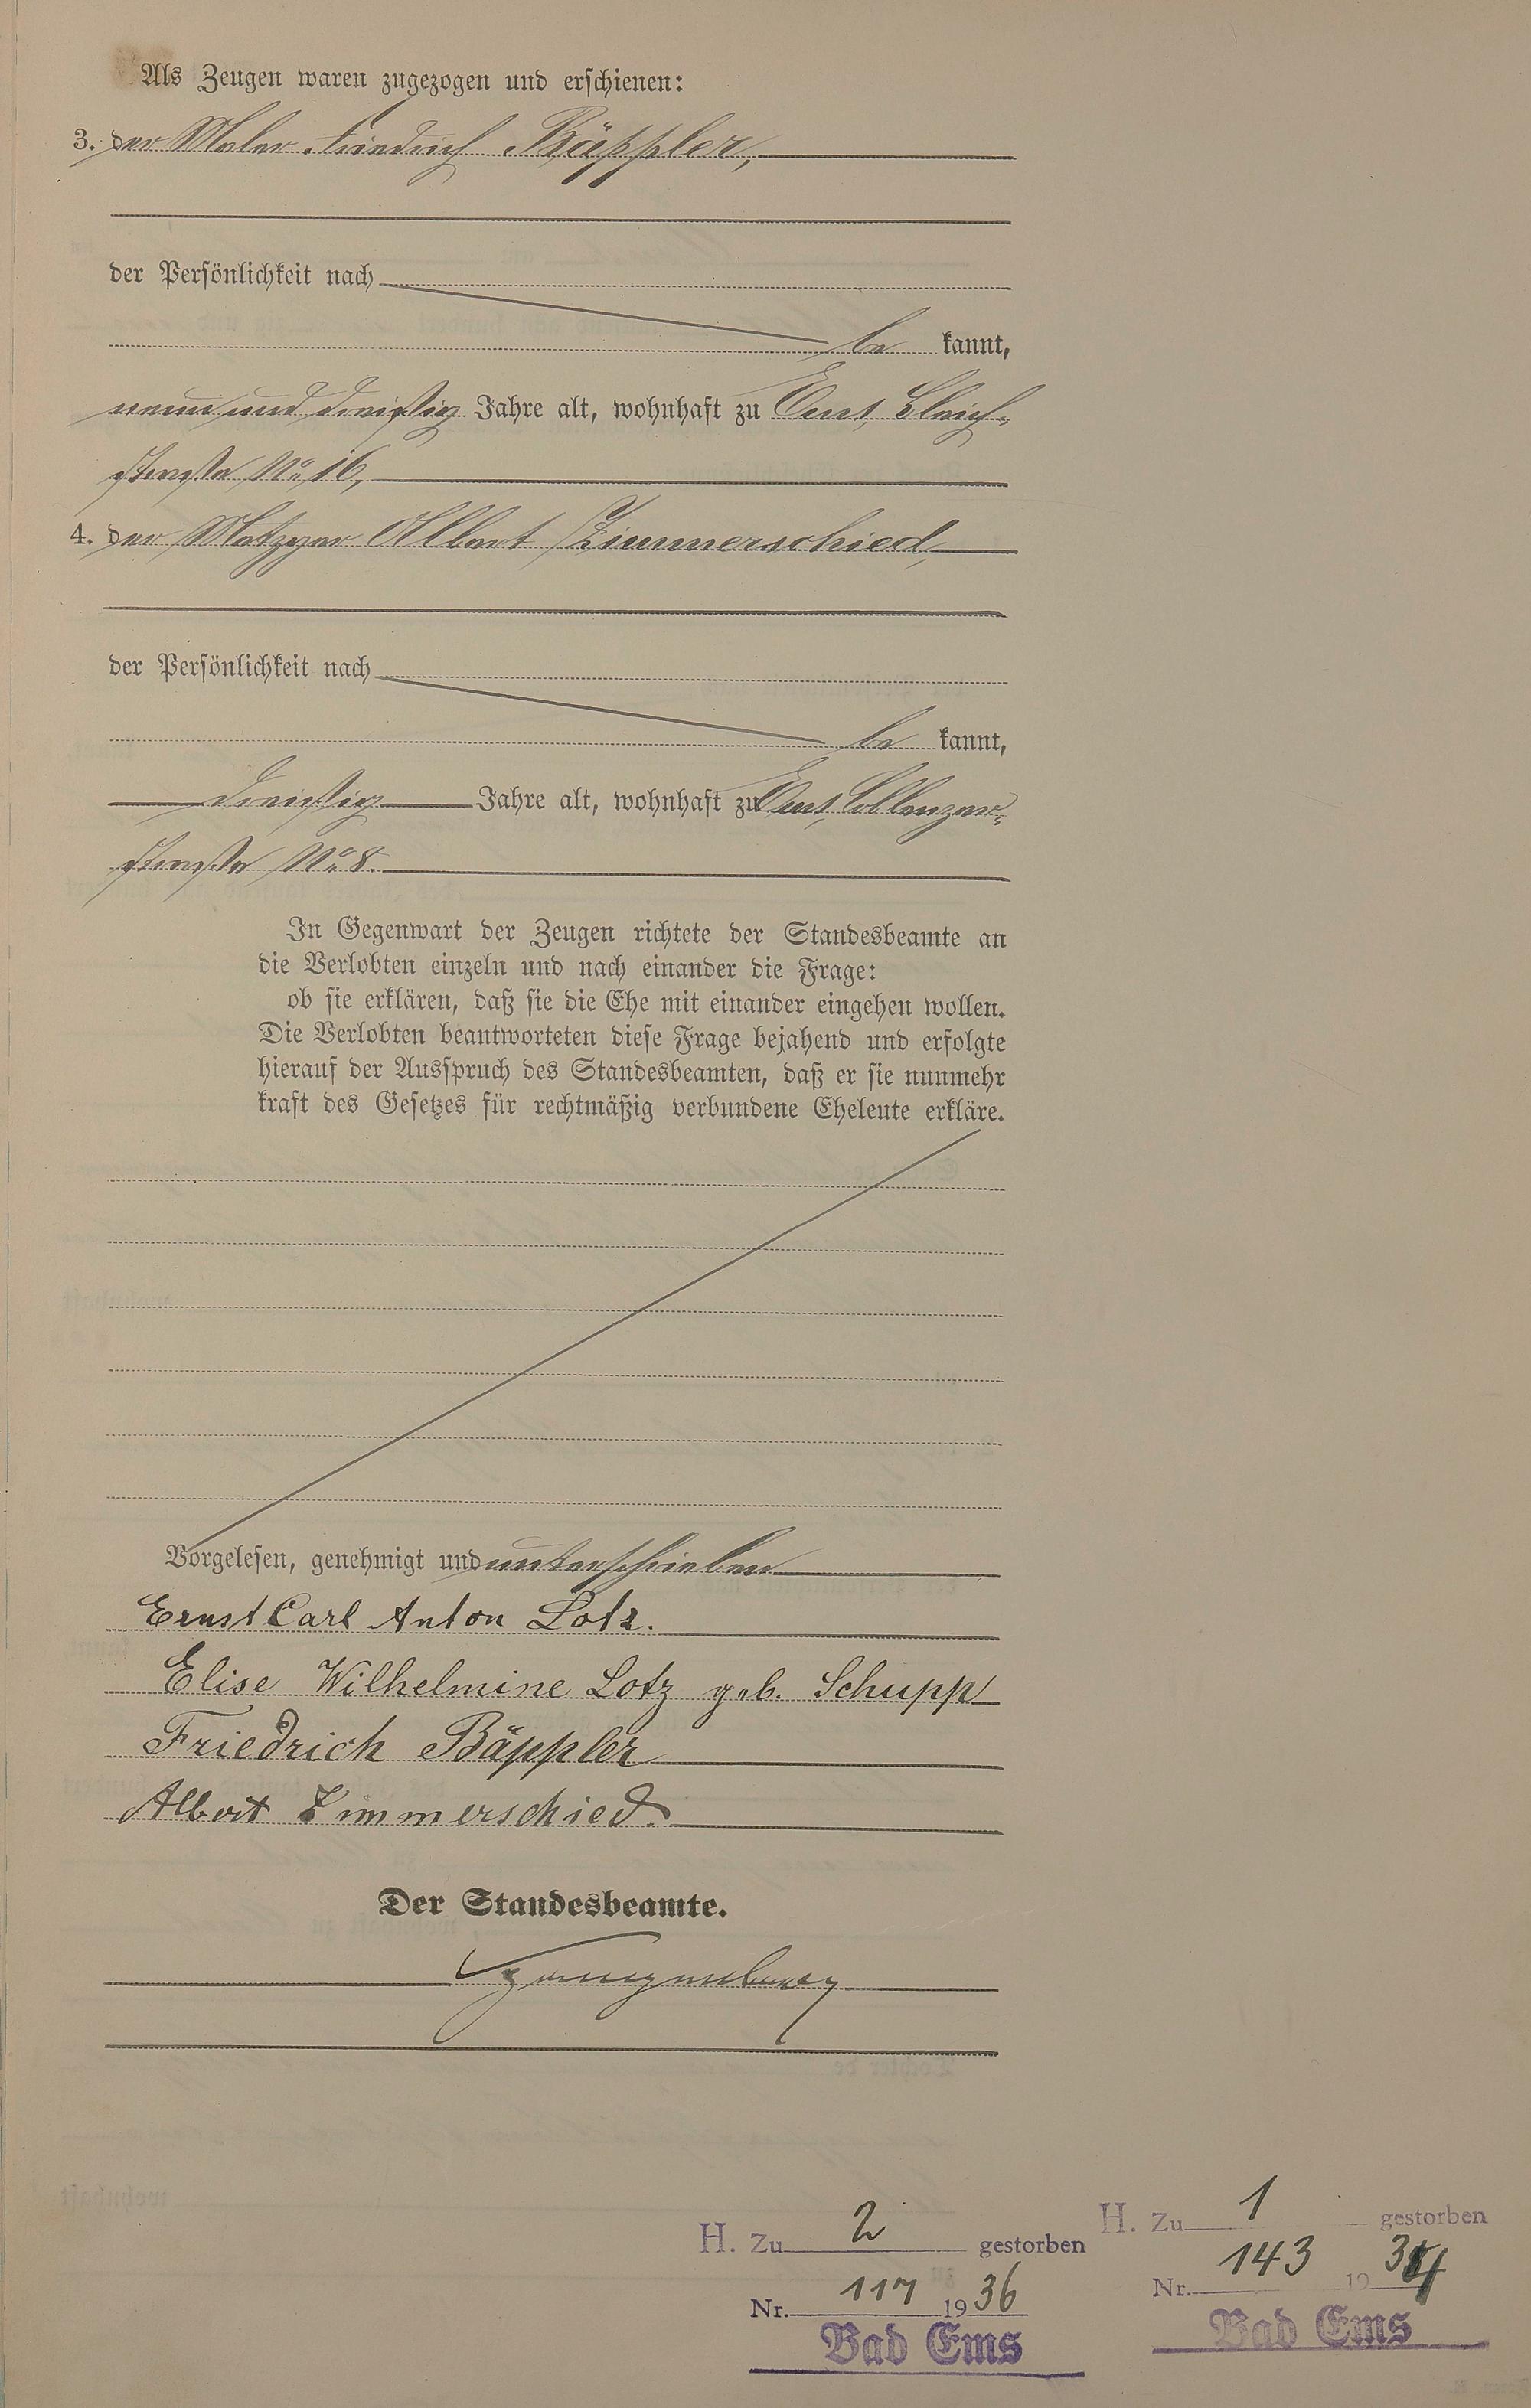 Als Zeugen waren zugezogen und erschienen:
3. der Maler Friedrich Bäppler,
der Persönlichkeit nach
be kannt,
neun und dreißig Jahre alt, wohnhaft zu Ems, Bleich-
straße No 16,
4. der Metzger Albert Zimmerschied,
der Persönlichkeit nach
be kannt,
dreißig Jahre alt, wohnhaft zu Ems, Coblenzer-
straße No 8.
In Gegenwart der Zeugen richtete der Standesbeamte an
die Verlobten einzeln und nach einander die Frage:
ob sie erklären, daß sie die Ehe mit einander eingehen wollen.
Die Verlobten beantworteten diese Frage bejahend und erfolgte
hierauf der Ausspruch des Standesbeamten, daß er sie nunmehr
kraft des Gesetzes für rechtmäßig verbundene Eheleute erkläre.
Vorgelesen, genehmigt und unterschrieben
Ernst Carl Anton Lotz.
Elise Wilhelmine Lotz geb. Schupp
Friedrich Bäppler
Albert Zimmerschied.
Der Standesbeamte.
H. Zu 2 gestorben
Nr. 117 1936
Bad Ems
H. Zu 1 gestorben
Nr. 143 1934
Bad Ems